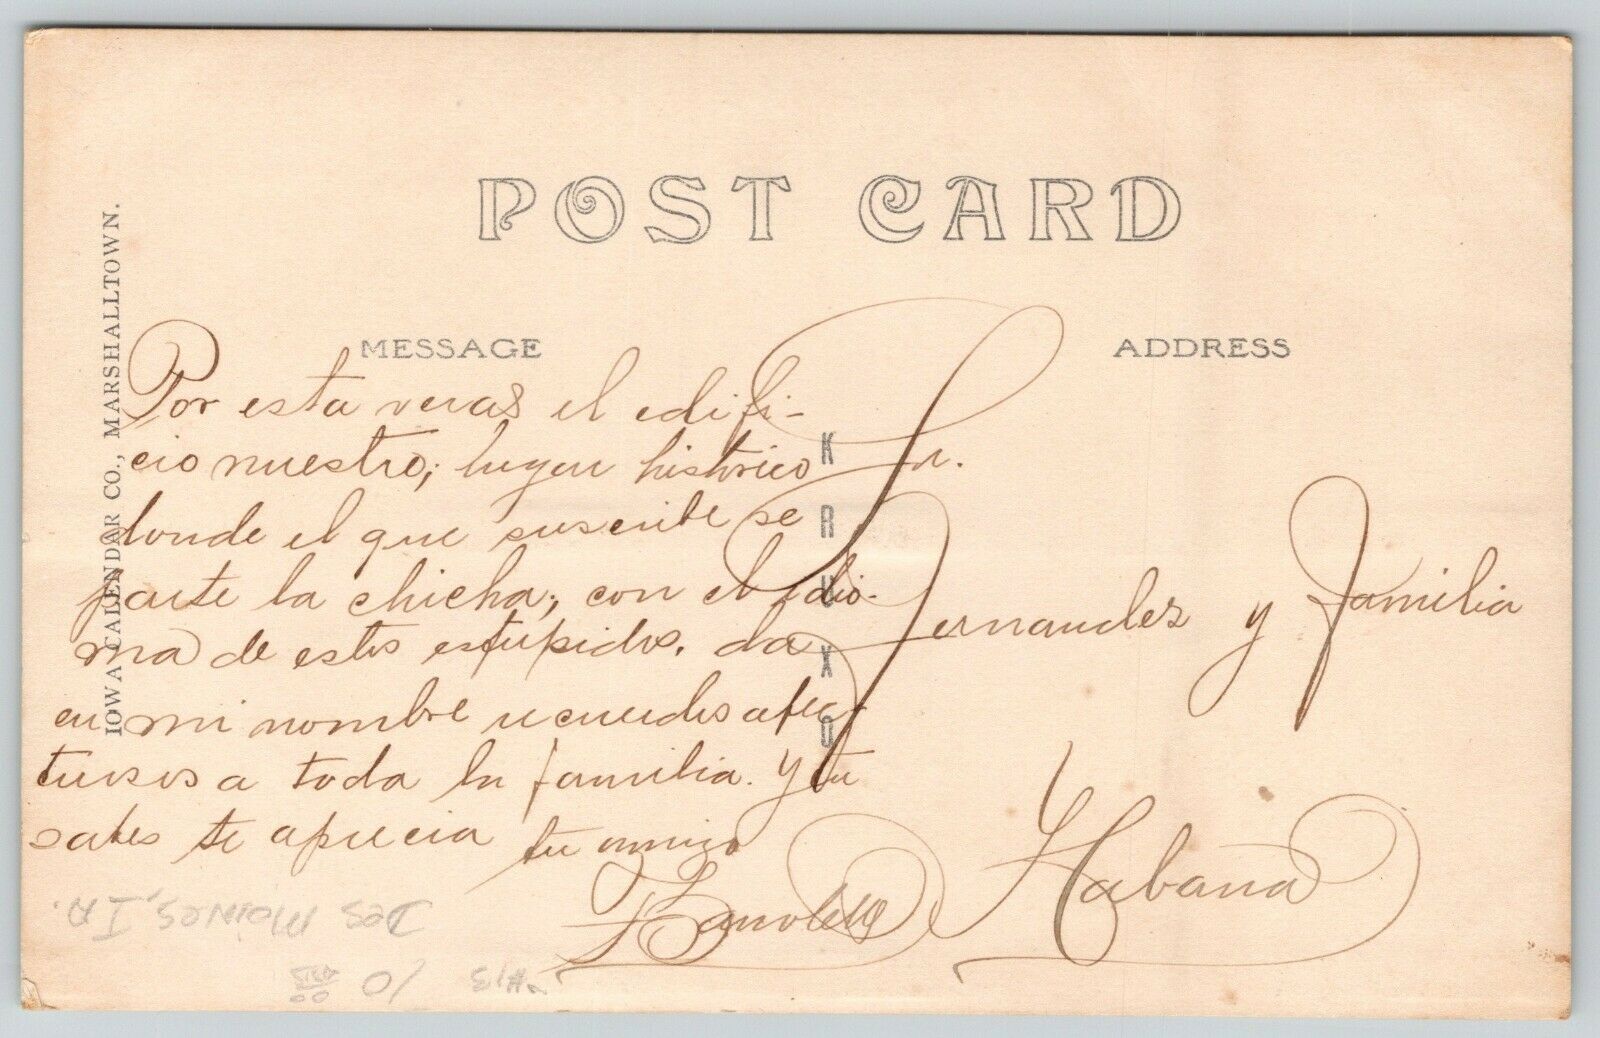 POST CARD
MESSAGE
ADDRESS
IOWA CALENDAR CO., MARSHALLTOWN.
KRUXO
Por esta veras el edifi-
cio nuestro; lugar historico
donde el que suscribe se
parte la chicha; con el idio-
ma de estos estupidos. da
en mi nombre recuerdos afec-
tuosos a toda la familia. y tu
sabes te aprecia tu amigo
Sr.
Fernandez y familia
Habana
Des Moines, IA.
#13 10